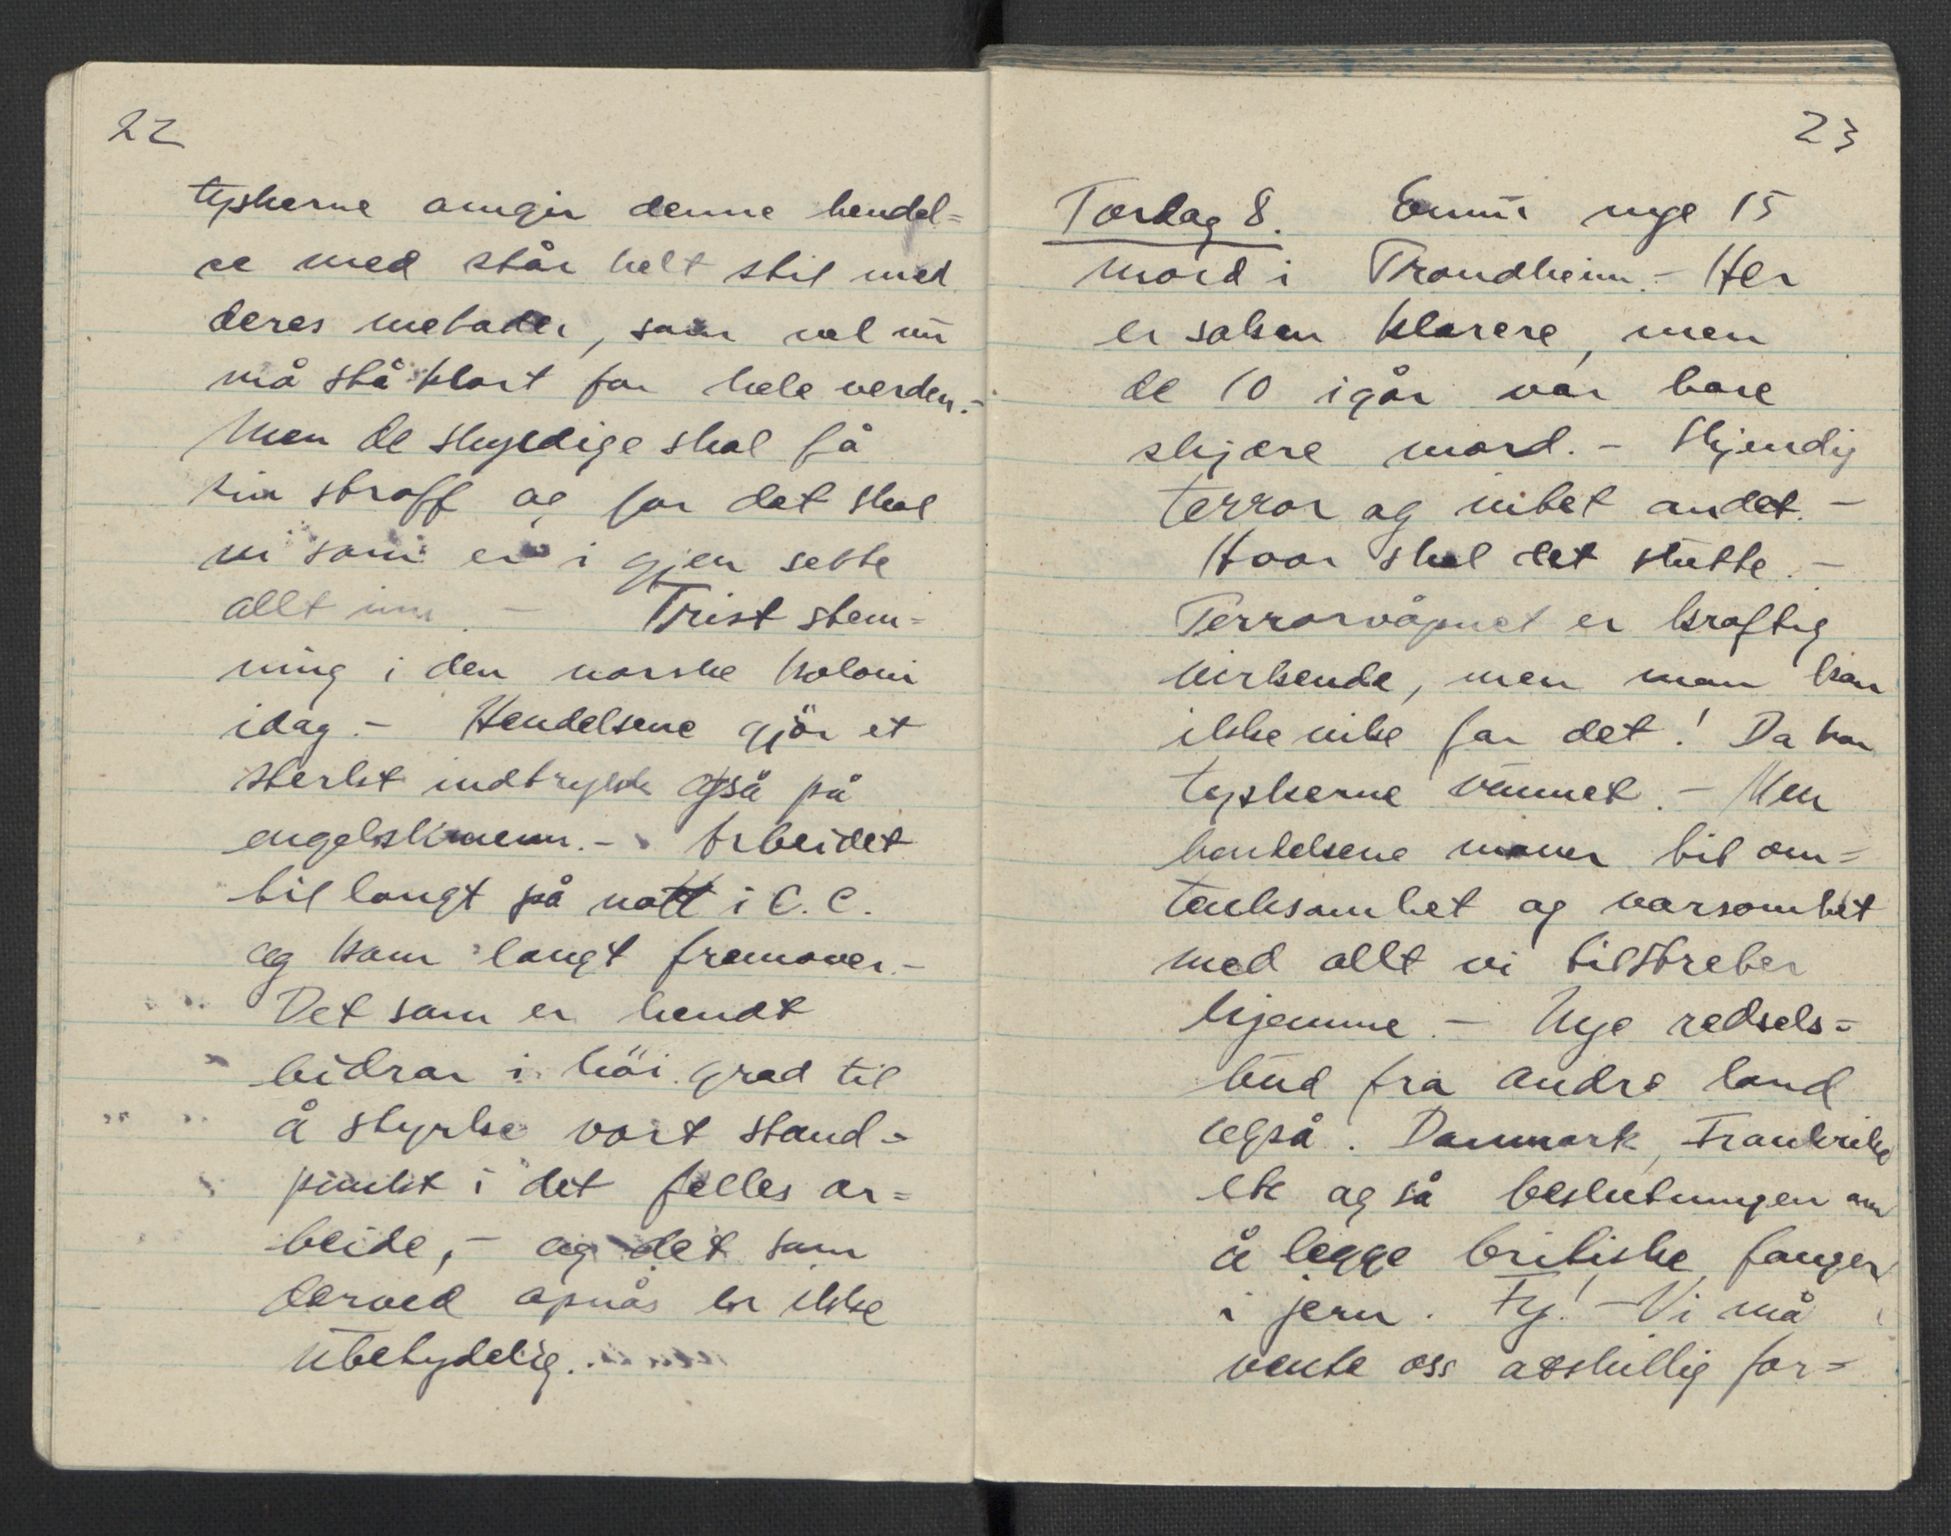 22
tyskerne omgir denne hendel=
se med står helt stil med
deres metoder, som vel nu
må stå klart for hele verden.-
Men de skyldige skal få
sin straff og for det skal
vi som er i gjen sette
allt inn. - Trist stem=
ning i den norske koloni
idag.- Hendelsene gjör et
sterkt indtrykk også på
engelskmenn.- Arbeidet
til langt på natt i C.C.
og kom langt fremover.-
Det som er hendt
bidrar i höi grad til
å styrke vort stand=
punkt i det felles ar=
beide,- og det som
derved opnås er ikke
ubetydelig.
23
Torsdag 8. Ennu nye 15
mord i Trondheim.- Her
er saken klarere, men
de 10 igår var bare
skjære mord.- Skjendig
terror og intet andet.-
Hvor skal det slutte.-
Terrorvåpnet er kraftig
virkende, men man kan
ikke vike for det! Da har
tyskerne vunnet.- Men
hendelsene maner til om=
tenksomhet og varsomhet
med allt vi tilstreber
hjemme.- Nye redsels=
bud fra andre land
også. Danmark, Frankrike
etc og så beslutningen om
å legge britiske fanger
i jern. Fy!- Vi må
vente oss adskillig for=